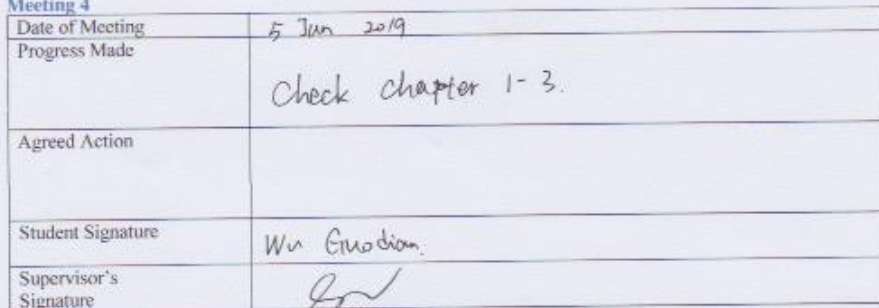 Meeting 4
Date of Meeting 5 Jun 2019
Progress Made
Check chapter 1-3.
Agreed Action
Student Signature Wu Guodian.
Supervisor's
Signature